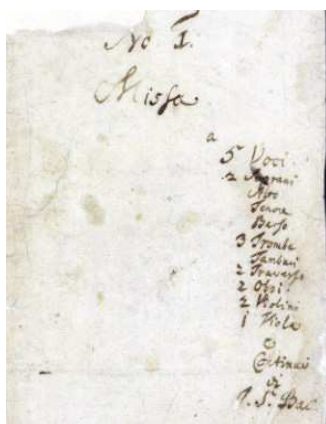 No 1.
Missa
a
5 Voci
2 Soprani
Alto
Tenore
Basso
3 Trombe
Tamburi
2 Traversi
2 Oboi
2 Violini
1 Viola
e
Continuo
di
J. S. Bac